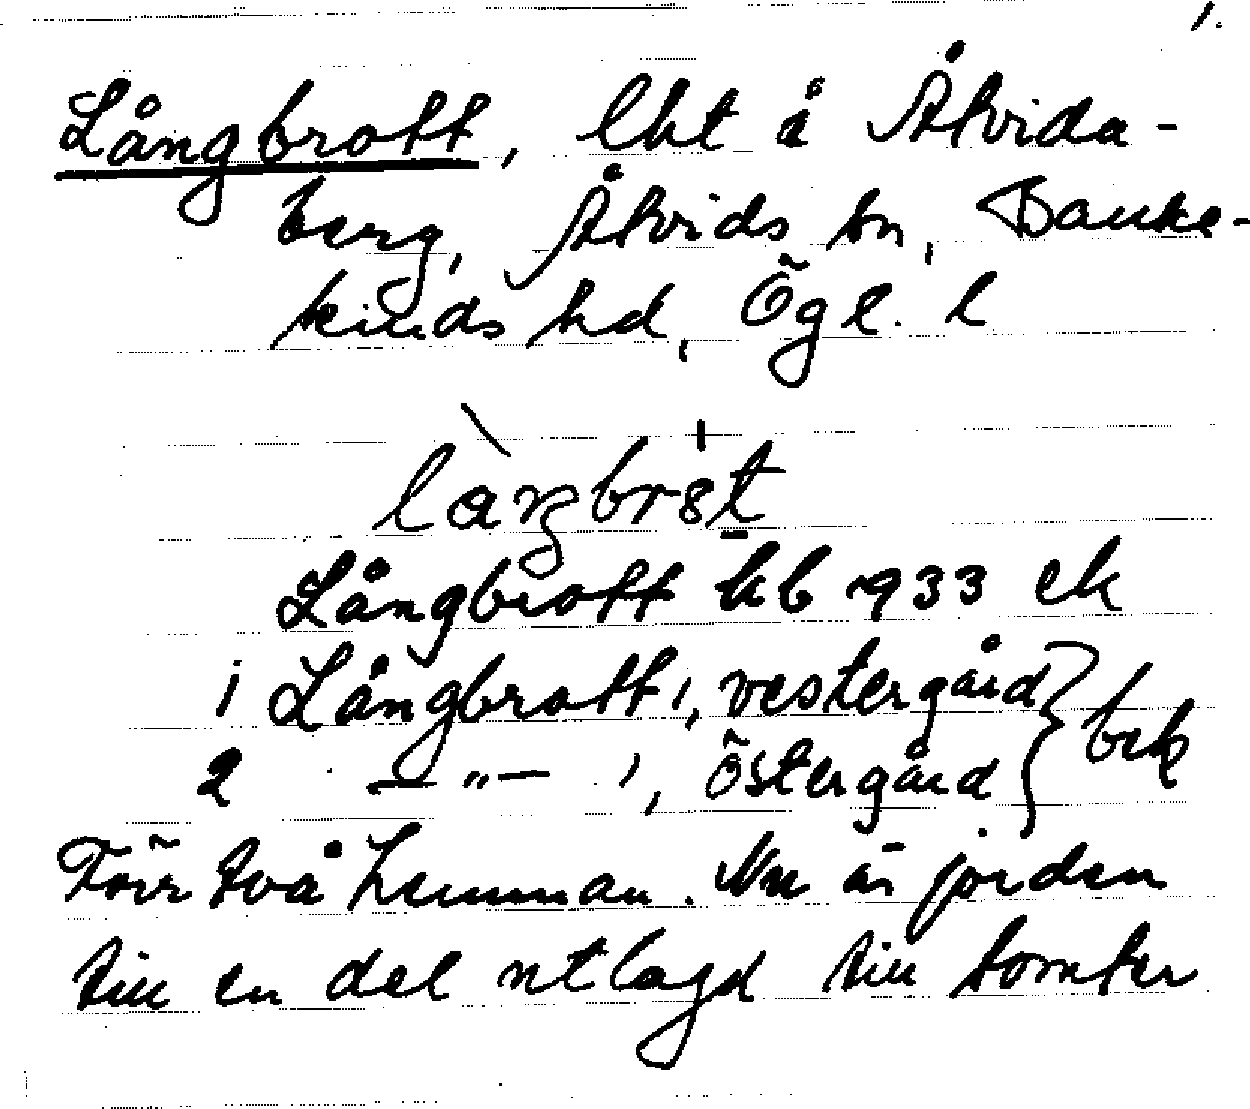 1.
Långbrott, lht å Åtvida-
berg, Åtvids sn, Banke-
kinds hd, Ögl. l
Långbrott kb 1933 ek
1 Långbrott, vestergård
2 —"— , Östergård } bek
Förr två hemman. Nu är jorden
till en del utlagd till tomter